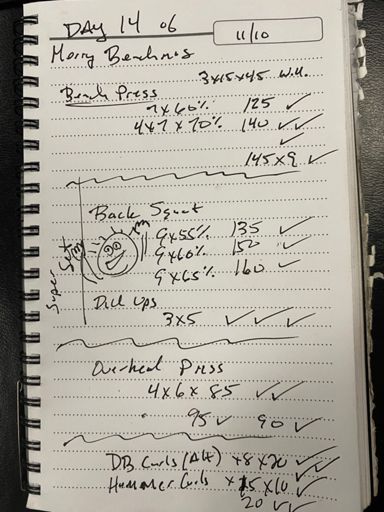 DAY 14 of
11/10
Merry Benchmas
3x15x45 w.u.
Bench Press
7x60% 125 ✓
4x7x70% 140 ✓✓
✓
145x9 ✓
Super Set
Back Squat
9x55% 135 ✓
9x60% 150 ✓
9x65% 160 ✓
Pull Ups
3x5 ✓ ✓ ✓
Overhead Press
4x6x85 ✓✓
95 ✓ 90 ✓
DB Curls (Alt) x8x20 ✓✓
Hammer Curls x15x10 ✓
20 ✓✓